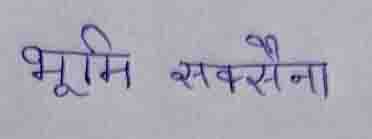 भूमि सक्सैना